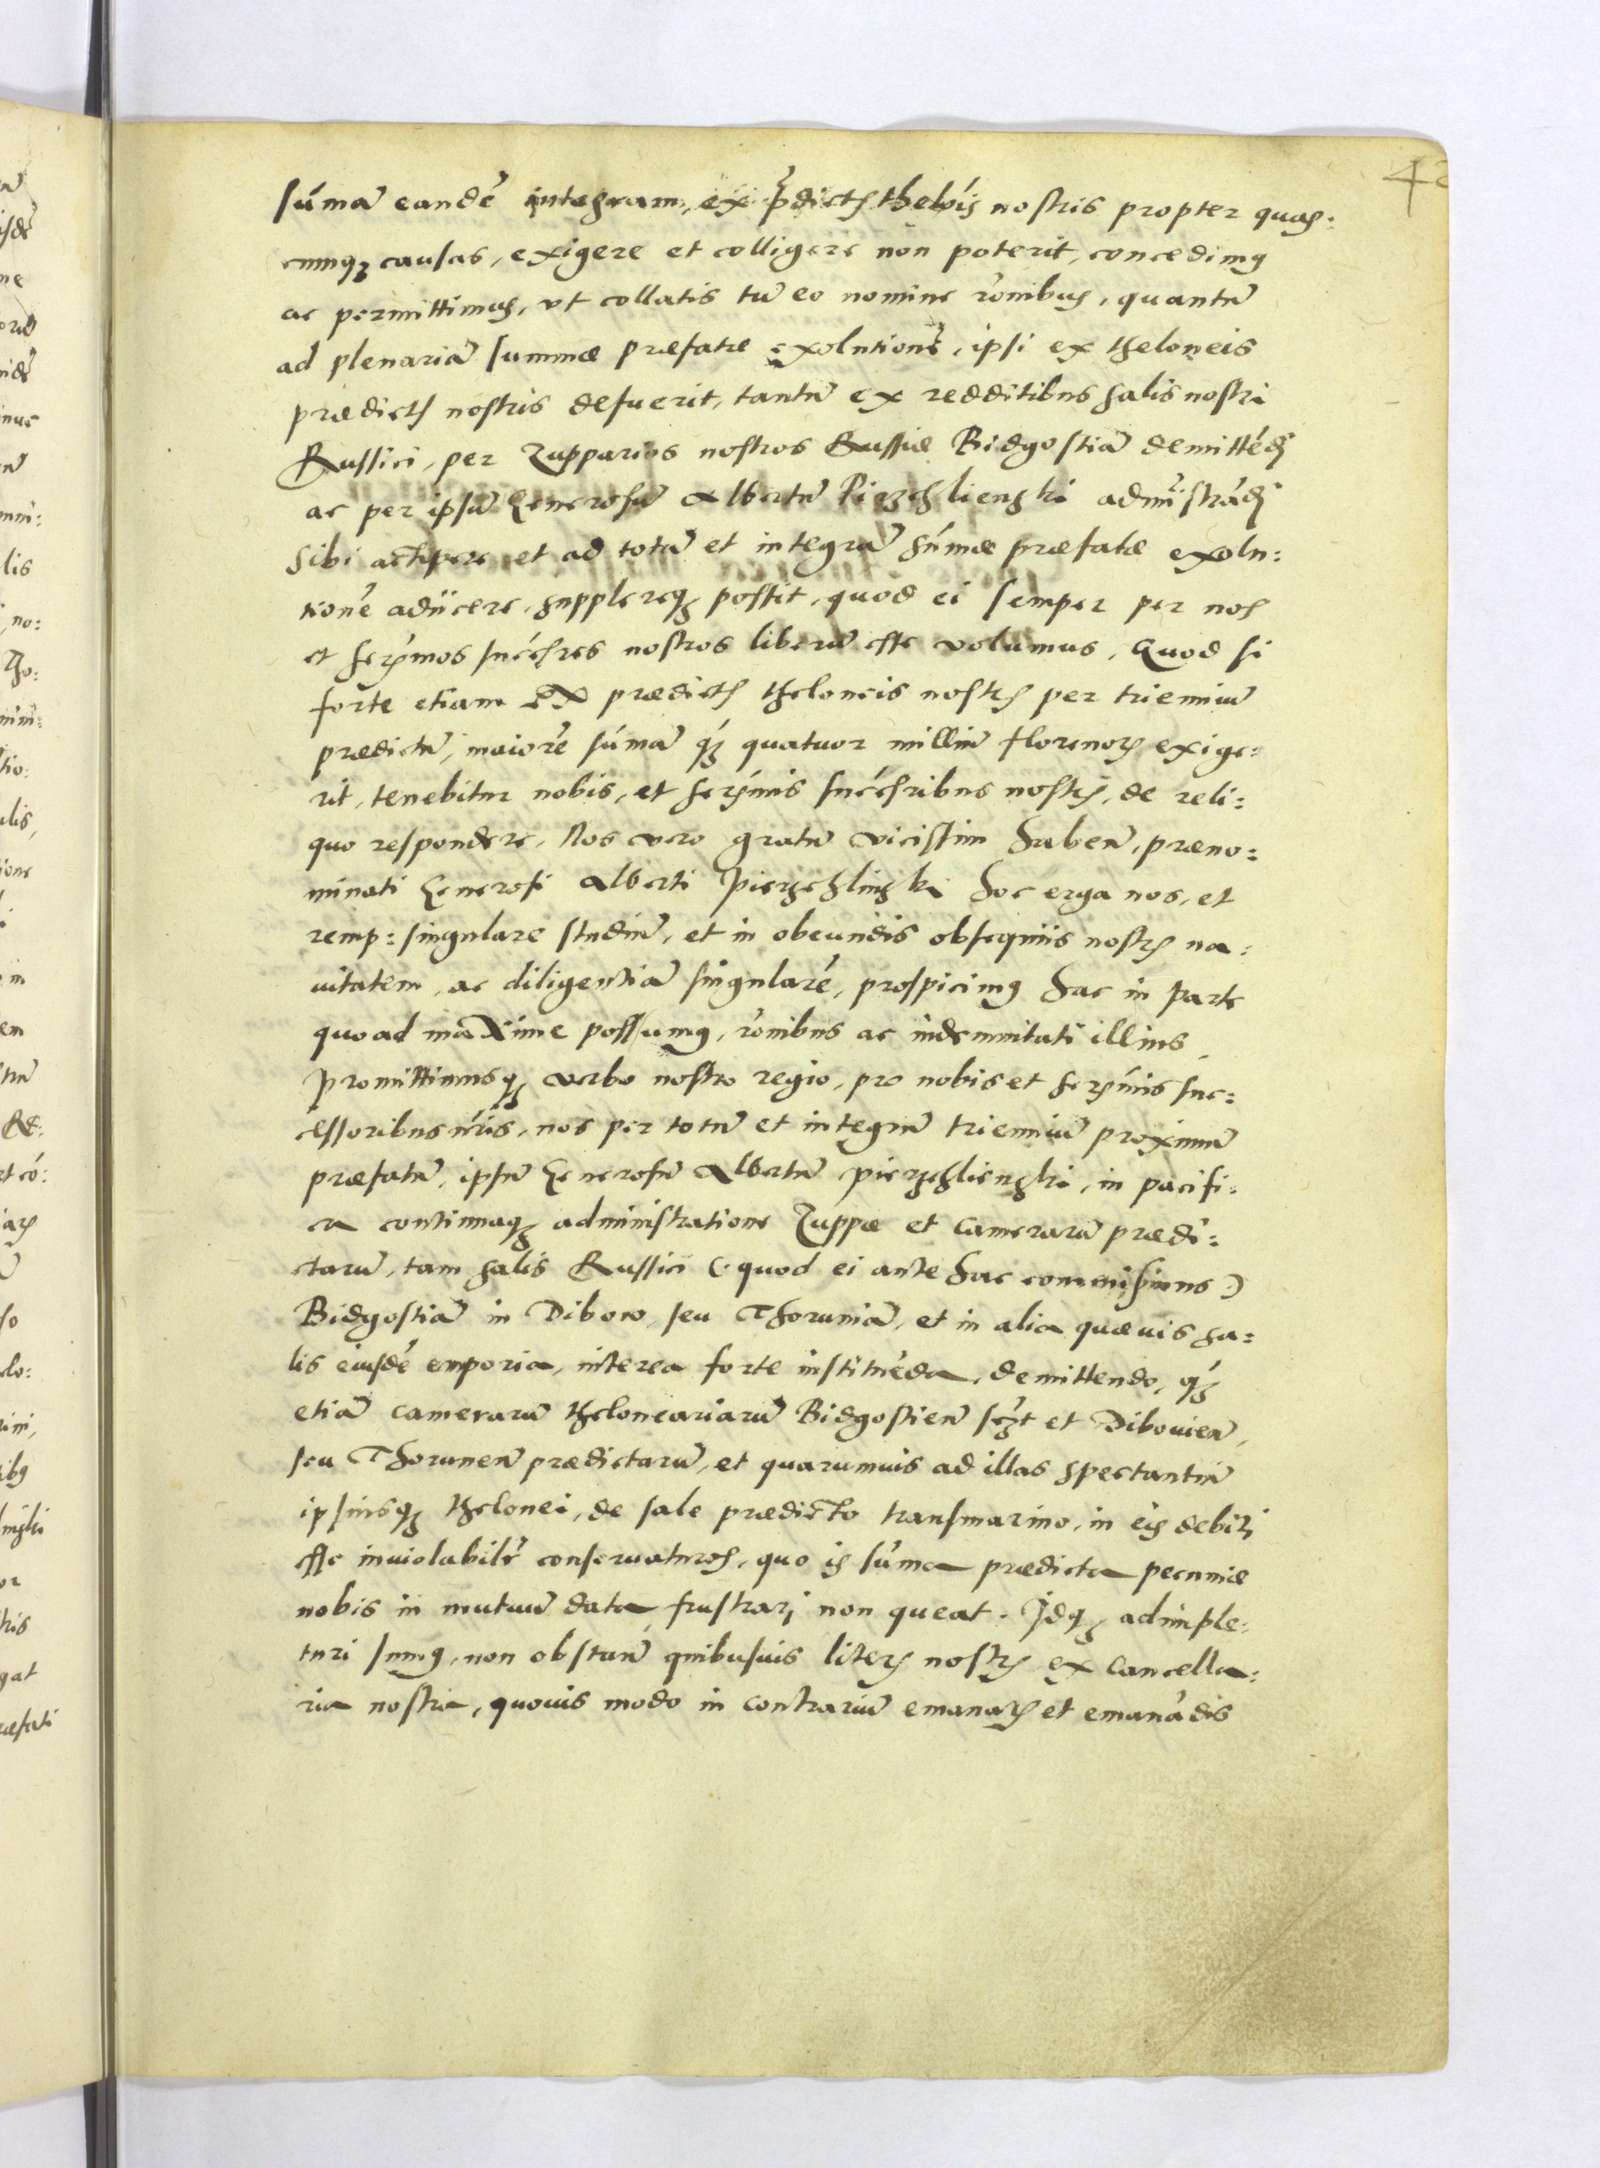 súmã eandē integram, ex p̄dictis thelōis nostris propter quas:
cunq; causas, exigere et colligere non poterit, concedimus
ac permittimus, vt collatis tū eo nomine rōnibus, quantū
ad plenariā summæ præfatæ exolutionē, ipsi ex theloneis
prædictis nostris defuerit, tantū ex redditibus salis nostri
Russici, per Zupparios nostros Russiæ Bidgostiā demittēdi
ac per ipsū Generosū Albertū Pierzchlienski adm̄istrādi
sibi accipere et ad totā et integrā sūmæ præfatæ exolu:
tionē adiicere, supplereq; possit, quod ei semper per nos
et serm̄os succēsres nostros liberū esse volumus, Quod si
forte etiam ex prædictis theloneis nostris per trienniū
prædictū, maiorē súmā q̃ quatuor milliū florenorum exige:
rit, tenebitur nobis, et serm̄is succēsribus nostris, de reli:
quo respondere. Nos vero gratū vicissim haben̄, præno:
minati Generosi Alberti Pierzchlinski hoc erga nos, et
remp: singulare studiū, et in obeundis obsequiis nostris na:
uitatem, ac diligentiā singularē, prospicimus hac in parte
quoad maxime possumus, rōnibus ac indemnitati illius,
Promittimusq; verbo nostro regio, pro nobis et serm̄is suc:
cessoribus nr̄is, nos per totū et integrū trienniū proximū
præfatū, ipsū Generosū Albertū Pierzchlienski, in pacifi:
ca continuaq; administratione Zuppæ et Camerarū prædi:
ctarū, tam salis Russici (quod ei ante hac commisimus)
Bidgostiā in Dibow seu Thoruniā, et in alia quæuis sa:
lis eiusdē emporia, interea forte instituēda, demittendo, q̃
etiā camerarū theloneariarū Bidgostien̄ scz̃t et Dibouien̄,
seu Thorunen̄ prædictarū, et quarumuis ad illas spectantiū
ipsiusq; thelonei, de sale prædicto transmarino, in eis debiti
esse inviolabilr̃ conseruaturos, quo is súma prædicta pecuniæ
nobis in mutuū data, frustrari non queat. Idq; adimple:
turi sumus, non obstan̄ quibusuis literis nostris ex Cancella:
ria nostra, quouis modo in contrariū emanatis et emanādis